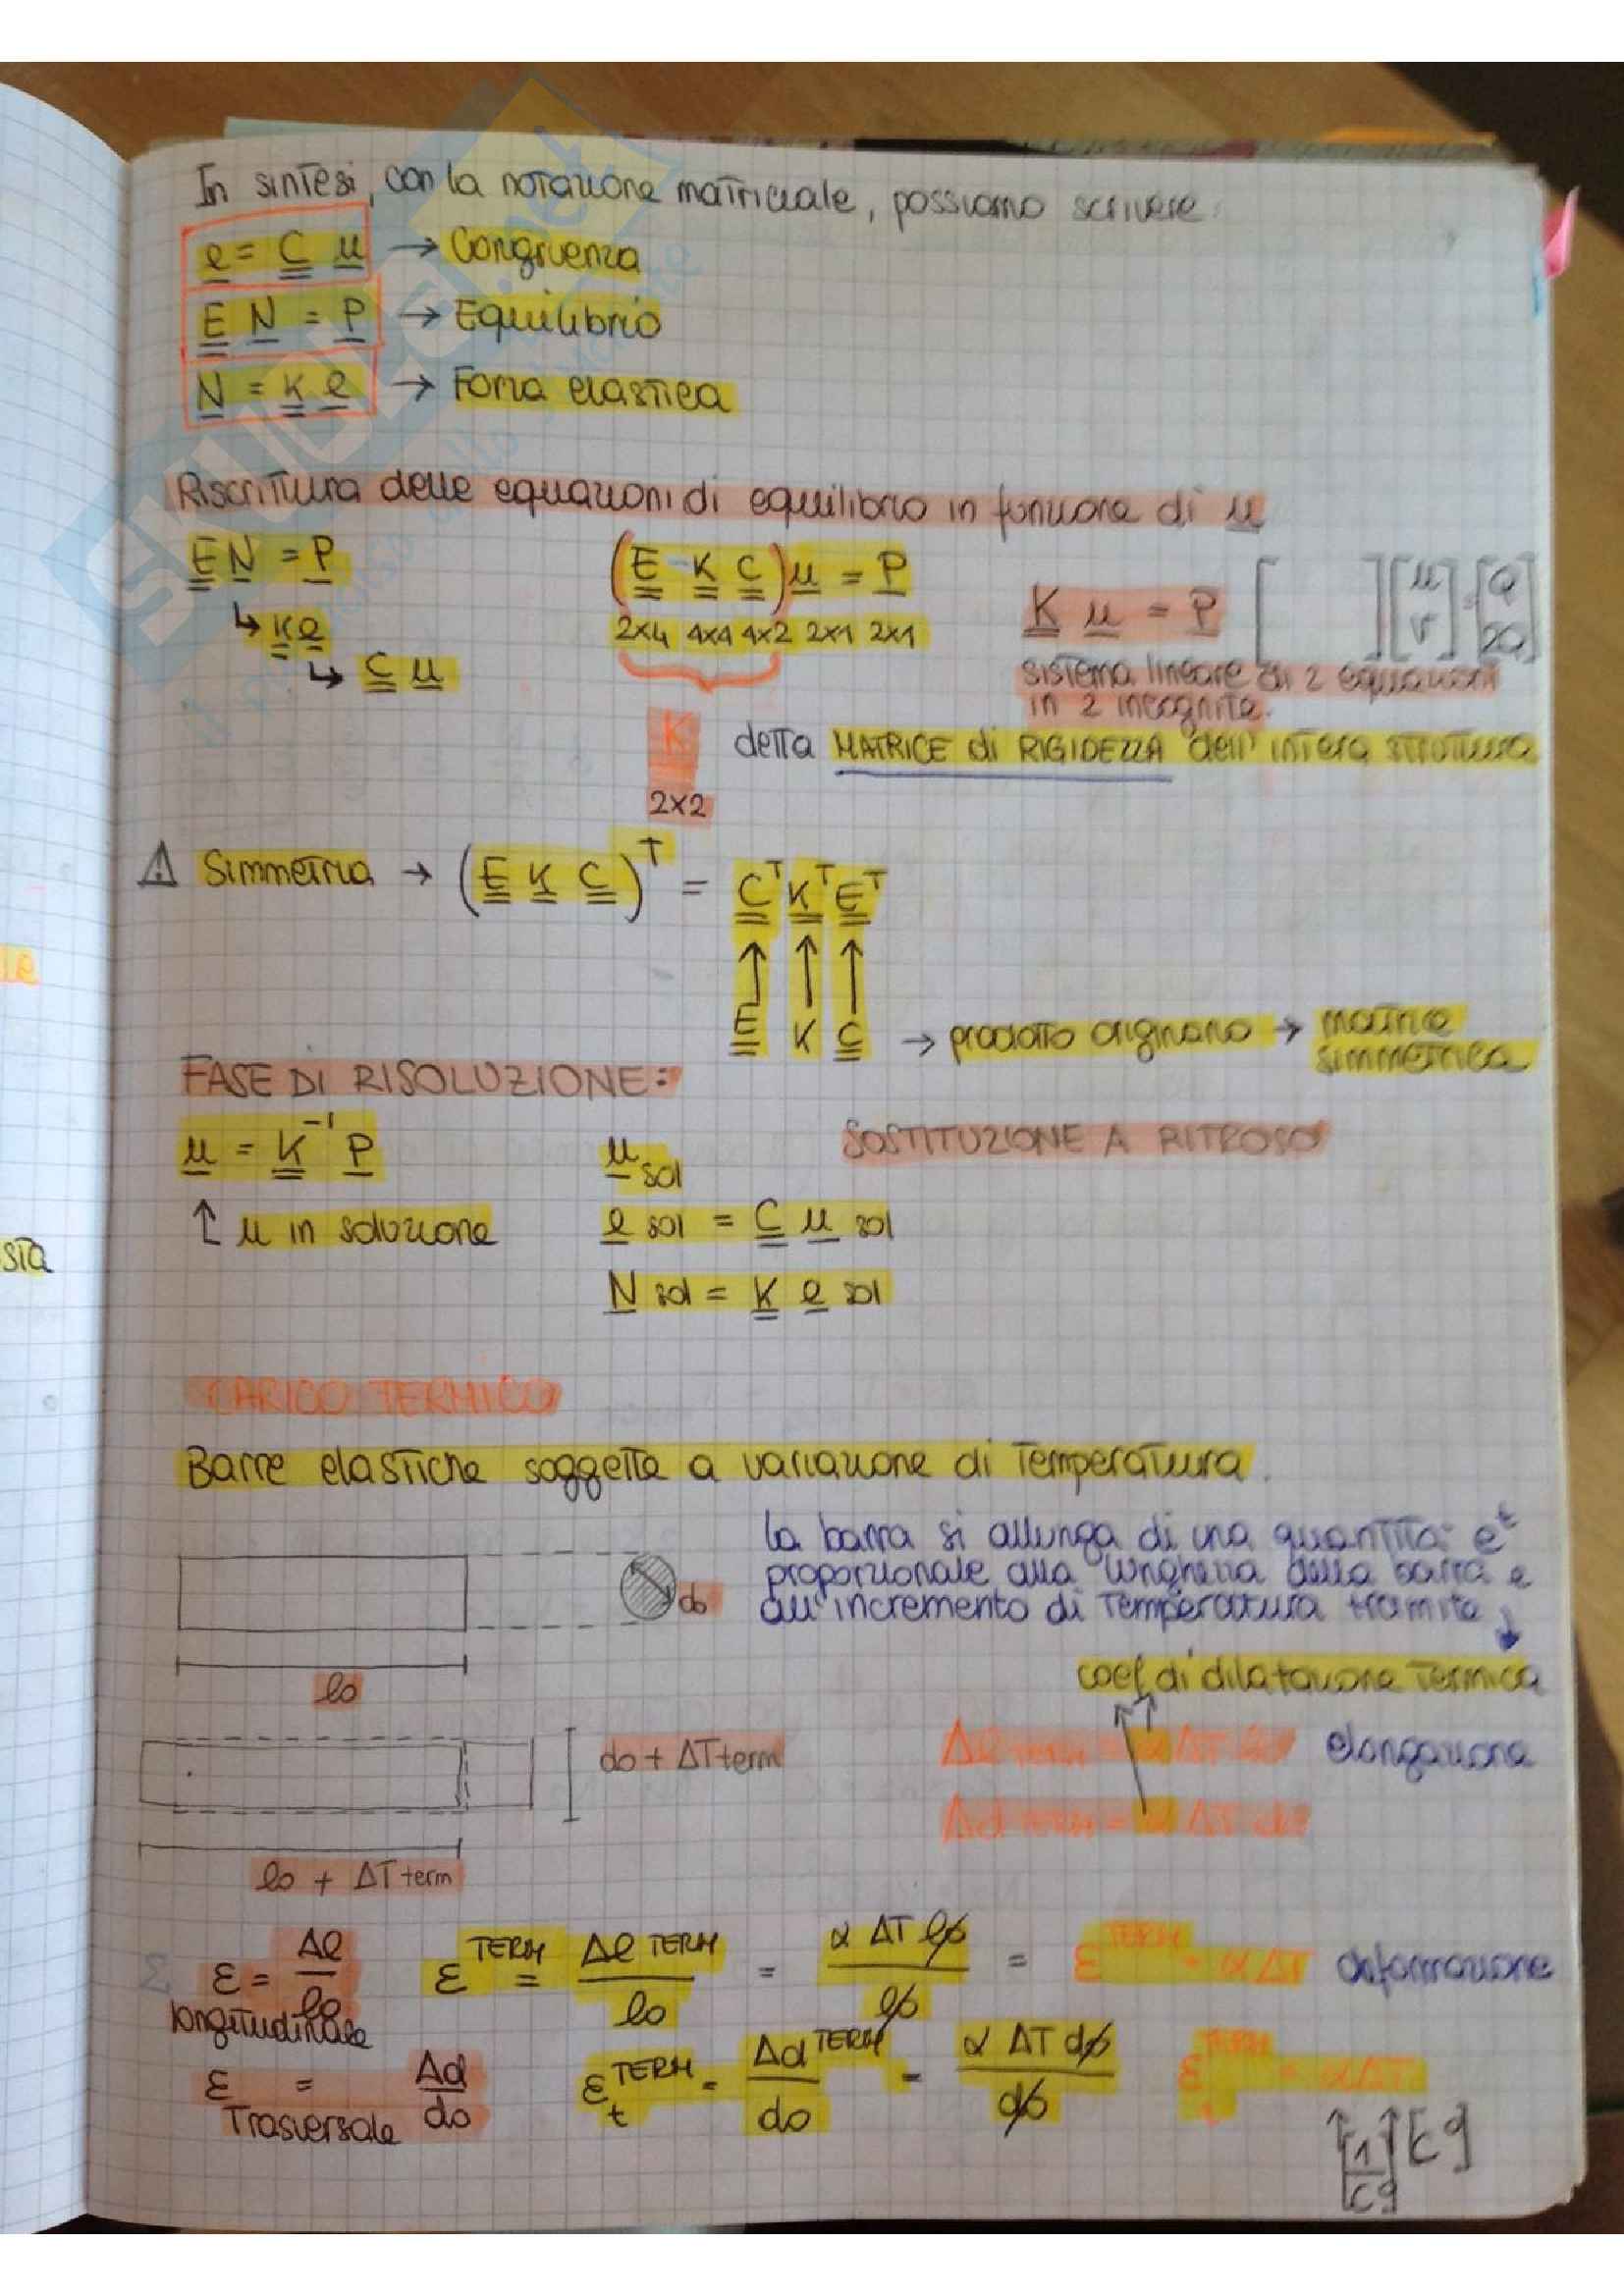 In sintesi, con la notazione matriciale, possiamo scrivere:
e = C u → Congruenza
E N = P → Equilibrio
N = K e → Forza elastica
Riscrittura delle equazioni di equilibrio in funzione di u
E N = P
↳ K e
↳ C u
(E K C) u = P
2x4 4x4 4x2 2x1 2x1
K
2x2
K u = P [ ] [u v] = [Q 2Q]
sistema lineare di 2 equazioni
in 2 incognite.
detta MATRICE di RIGIDEZZA dell'intera struttura
⚠ Simmetria → (E K C)^T = C^T K^T E^T
↑ ↑ ↑
E K C → prodotto originario → matrice
simmetrica
FASE DI RISOLUZIONE:
u = K^-1 P
↑ u in soluzione
SOSTITUZIONE A RITROSO
u sol
e sol = C u sol
N sol = K e sol
CARICO TERMICO
Barre elastiche soggette a variazione di Temperatura.
la barra si allunga di una quantità e^t
proporzionale alla lunghezza della barra e
all'incremento di Temperatura tramite ↓
coef di dilatazione Termica
do
lo
do + ΔT term
lo + ΔT term
Δl TERM = α ΔT lo elongazione
Δd TERM = α ΔT do
ε = Δl / lo
longitudinale
ε^TERM = Δl TERM / lo = α ΔT lo / lo = ε^TERM = α ΔT deformazione
ε = Δd / do
Trasversale
ε t^TERM = Δd^TERM / do = α ΔT do / do
ε t^TERM = α ΔT